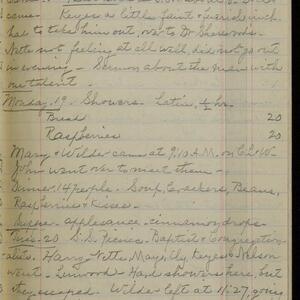 came. Keyes a little faint & search inck
has to take him out, over to Dr Sherwoods.
Note not feeling at all well, did not go out
in evening - Sermon about the man with
one talent.
Monday. 19. Showers. Latin, ½ hr.
Bread 20
Raspberries 20
Mary & Wilder came at 9.10 A.M. on
John went over to meet them -
Dinner. 14 people. Soup, Crackers, Beans,
Raspberries & Kisses.
applesauce - cinnamon drops.
Tues. 20 S.S. Picnic. Baptist & Congregation-
alis. Harry, Notte, Mary, Ely, Keyes & Nelson
went - Linwood - Hard showers here, but
they escaped. Wilder left at 11.27, going